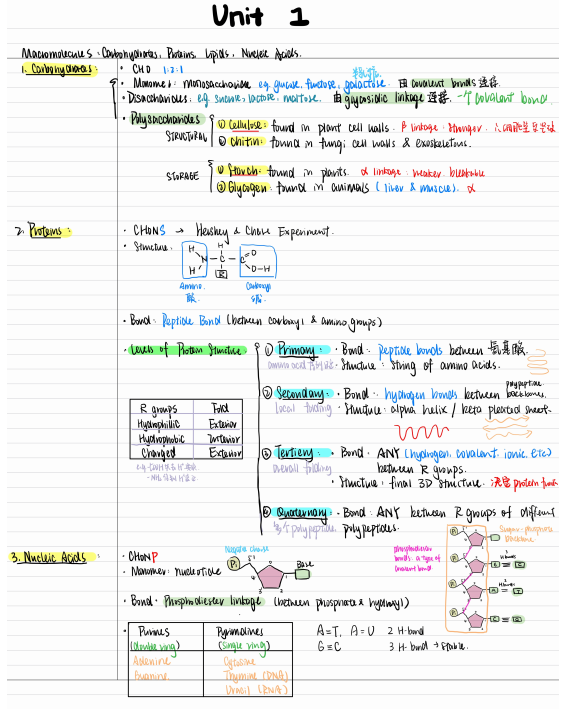 Unit 1
Macromolecules: Carbohydrates, Proteins, Lipids, Nucleic Acids.
1. Carbohydrates:
· CHO 1:2:1
· Monomer: monosaccharide e.g. glucose, fructose, galactose. 由 covalent bonds 连接.
· Disaccharides: e.g. sucrose, lactose, maltose. 由 glycosidic linkage 连接. 一个 covalent bond
· Polysaccharides
STRUCTURAL
① Cellulose: found in plant cell walls. β linkage. Stronger.
② Chitin: found in fungi cell walls & exoskeletons.
STORAGE
① Starch: found in plants. α linkage. weaker. breakable
② Glycogen: found in animals (liver & muscle). α
2. Proteins:
· CHONS → Hershey & Chase Experiment.
· Structure:
H H O
N — C — C
H R O—H
Amino Carboxyl
· Bond: Peptide Bond (between carboxyl & amino groups)
· Levels of Protein Structure
① Primary: · Bond: peptide bonds between 氨基酸.
amino acid
· Structure: string of amino acids.
② Secondary: · Bond: hydrogen bonds between polypeptide backbones.
local folding · Structure: alpha helix / beta pleated sheet
R groups Fold
Hydrophilic Exterior
Hydrophobic Interior
Charged Exterior
③ Tertiary: · Bond: ANY (hydrogen, covalent, ionic, etc) between R groups.
overall folding
· Structure: final 3D structure. 决定 protein
④ Quaternary: · Bond: ANY between R groups of different polypeptides.
多个 polypeptide
3. Nucleic Acids:
· CHONP
· Monomer: nucleotide
Negative charge
Pi
Base
5
4
1
3 2
phosphodiester bonds: a type of covalent bond
Sugar-phosphate backbone
· Bond: Phosphodiester linkage (between phosphate & hydroxyl)
· Purines Pyrimidines
(double ring) (single ring)
Adenine Cytosine
Guanine Thymine (DNA)
Uracil (RNA)
A=T, A=U 2 H-bond
G≡C 3 H-bond → stable.